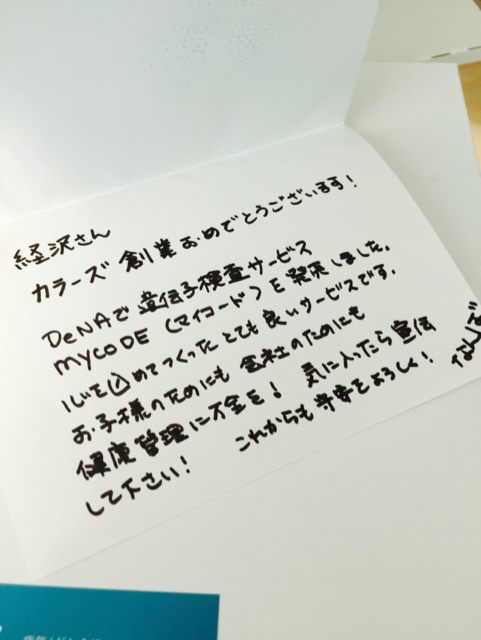 経沢さん
カラーズ 創業おめでとうございます！
DeNAで 遺伝子検査サービス
MYCODE（マイコード）を発表しました。
心を込めてつくったとても良いサービスです。
お子様のためにも 会社のためにも
健康管理に万全を！ 気に入ったら宣伝
して下さい！ これからも守安をよろしく！
なんば